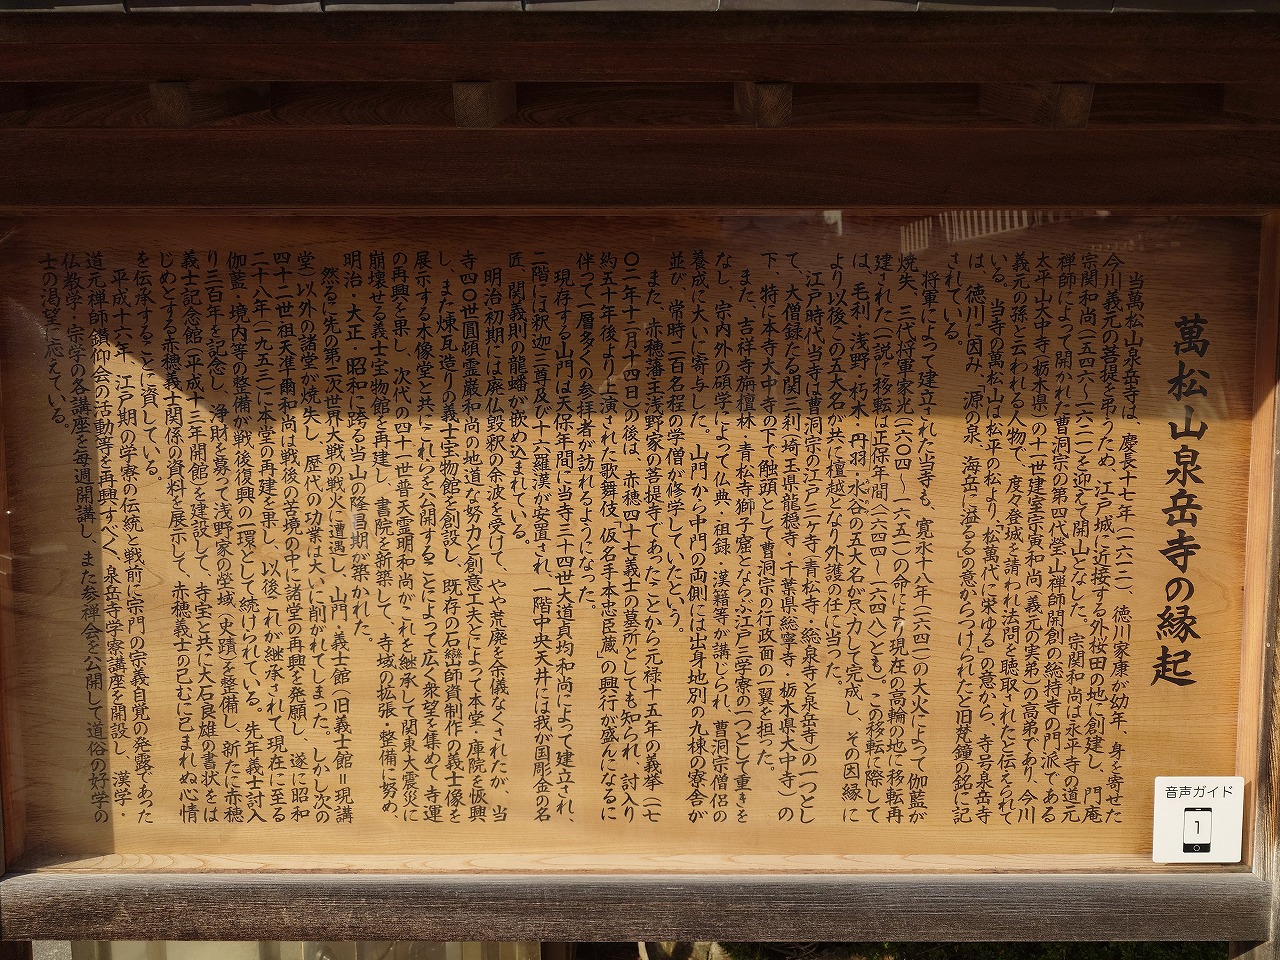 萬松山泉岳寺の縁起
当萬松山泉岳寺は、慶長十七年（一六一二）、徳川家康が幼年、身を寄せた
今川義元の菩提を弔うため、江戸城に近接する外桜田の地に創建し、門庵
宗関和尚（一五四六〜一六二一）を迎えて開山となした。宗関和尚は永平寺の道元
禅師によって開かれた曹洞宗の第四代瑩山禅師開創の総持寺の門派である
太平山大中寺（栃木県）の十一世建室宗寅和尚（義元の実弟）の高弟であり、今川
義元の孫と云われる人物で、度々登城を請われ法問を聴取されたと伝えられて
いる。当寺の萬松山は松平の松より、「松萬代に栄ゆる」の意から、寺号泉岳寺
は、徳川に因み、「源の泉、海岳に溢るる」の意からつけられたと旧梵鐘の銘に記
されている。
将軍によって建立された当寺も、寛永十八年（一六四一）の大火によって伽藍が
焼失、三代将軍家光（一六〇四〜一六五一）の命により現在の高輪の地に移転再
建された（一説に移転は正保年間（一六四四〜一六四八）とも）。この移転に際して
は、毛利・浅野・朽木・丹羽・水谷の五大名が尽力して完成し、その因縁に
より以後、この五大名が共に檀越となり外護の任に当った。
江戸時代当寺は曹洞宗の江戸三ケ寺（青松寺・総泉寺と泉岳寺）の一つとし
て、大僧録たる関三刹（埼玉県龍穏寺・千葉県総寧寺・栃木県大中寺）の
下、特に本寺大中寺の下で触頭として曹洞宗の行政面の一翼を担った。
また、吉祥寺旃檀林・青松寺獅子窟とならぶ江戸三学寮の一つとして重きを
なし、宗内外の碩学によって仏典・祖録・漢籍等が講じられ、曹洞宗僧侶の
養成に大いに寄与した。山門から中門の両側には出身地別の九棟の寮舎が
並び、常時二百名程の学僧が修学していたという。
また、赤穂藩主浅野家の菩提寺であったことから元禄十五年の義挙（一七
〇二年十二月十四日）の後は、赤穂四十七義士の墓所としても知られ、討入り
約五十年後より上演された歌舞伎「仮名手本忠臣蔵」の興行が盛んになるに
伴って一層多くの参拝者が訪れるようになった。
現存する山門は天保年間に当寺三十四世大道貞均和尚によって建立され、
二階には釈迦三尊及び十六羅漢が安置され、一階中央天井には我が国彫金の名
匠、関義則の龍蟠が嵌め込まれている。
明治初期には廃仏毀釈の余波を受けて、やや荒廃を余儀なくされたが、当
寺四〇世圓頓霊巌和尚の地道な努力と創意工夫とによって本堂・庫院を恢興
し、また煉瓦造りの義士宝物館を創設し、既存の石巒師資制作の義士像を
展示する木像堂と共にこれらを公開することによって広く衆望を集めて寺運
の再興を果し、次代の四十一世普天霊明和尚がこれを継承して関東大震災に
崩壊せる義士宝物館を再建し、書院を新築して、寺域の拡張・整備に努め、
明治・大正・昭和に跨る当山の隆昌期が築かれた。
然るに先の第二次世界大戦の戦火に遭遇し、山門・義士館（旧義士館＝現講
堂）以外の諸堂が焼失し、歴代の功業は大いに削がれてしまった。しかし次の
四十二世祖天準爾和尚は戦後の苦境の中に諸堂の再興を発願し、遂に昭和
二十八年（一九五三）に本堂の再建を果し、以後これが継承されて現在に至る
伽藍・境内等の整備が戦後復興の一環として続けられている。先年義士討入
り三百年を記念し、浄財を募って浅野家の塋域（史蹟）を整備し、新たに赤穂
義士記念館（平成十三年開館）を建設して、寺宝と共に大石良雄の書状をは
じめとする赤穂義士関係の資料を展示して、赤穂義士の已むに已まれぬ心情
を伝承することに資している。
平成十六年、江戸期の学寮の伝統と戦前に宗門の宗義自覚の発露であった
道元禅師鑽仰会の活動等を再興すべく、泉岳寺学寮講座を開設し、漢学・
仏教学・宗学の各講座を毎週開講し、また参禅会を公開して道俗の好学の
士の渇望に応えている。
音声ガイド
1